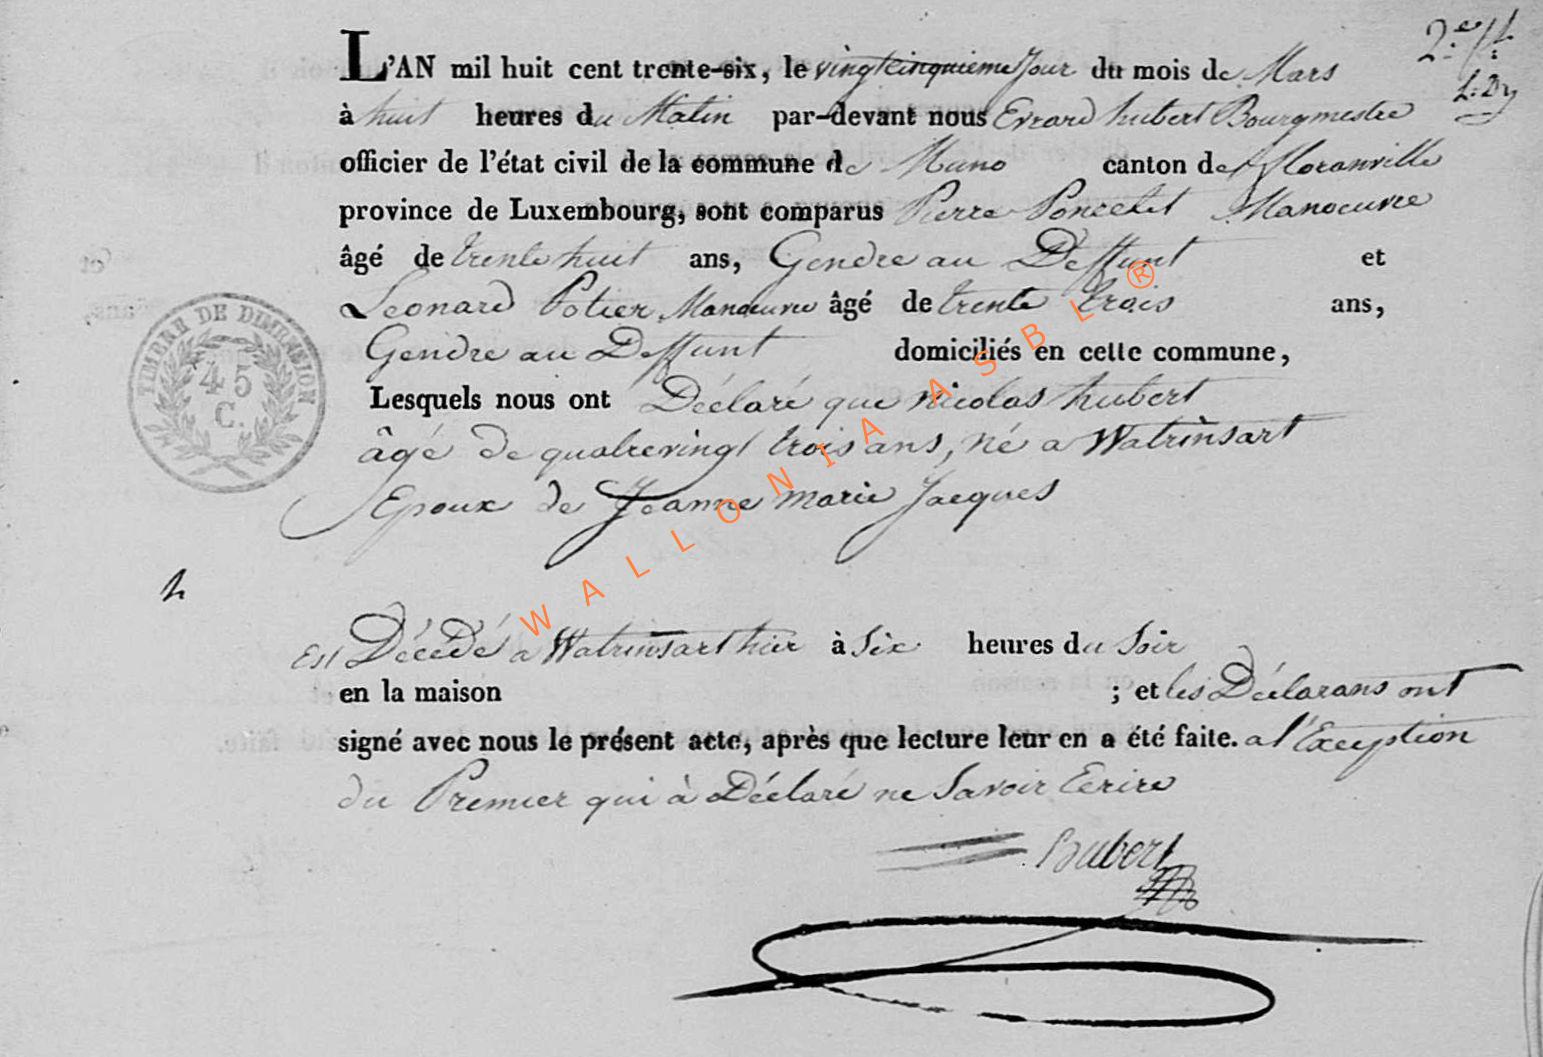 L'AN mil huit cent trente-six, le vingtcinquieme Jour du mois de Mars
à huit heures du Matin par-devant nous Evrard hubert Bourgmestre
officier de l'état civil de la commune de Muno canton de floranville
province de Luxembourg, sont comparus Pierre Poncelet Manoeuvre
âgé de trente huit ans, Gendre au Deffunt et
Leonard Potier Manoeuvre âgé de trente trois ans,
Gendre au Deffunt domiciliés en cette commune,
TIMBRE DE DIMENSION
45
C.
Lesquels nous ont Déclaré que nicolas hubert
âgé de quatrevingt trois ans, né a Watrinsart
Epoux de Jeanne marie Jacques
Est Décédé a Watrinsart hier à Six heures du Soir
en la maison ; et les Déclarans ont
signé avec nous le présent acte, après que lecture leur en a été faite. a l'Exception
du Premier qui à Déclaré ne Savoir Ecrire
hubert
WALLONIA ASBL ®